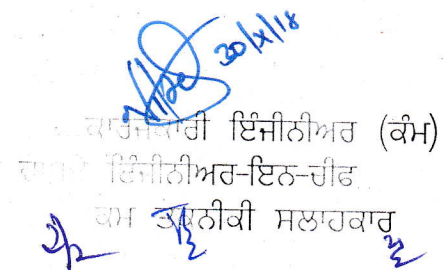 30/x/18
ਕਾਰਜਕਾਰੀ ਇੰਜੀਨੀਅਰ (ਕੰਮ)
ਇੰਜੀਨੀਅਰ-ਇਨ-ਚੀਫ
ਕਮ ਤਕਨੀਕੀ ਸਲਾਹਕਾਰ